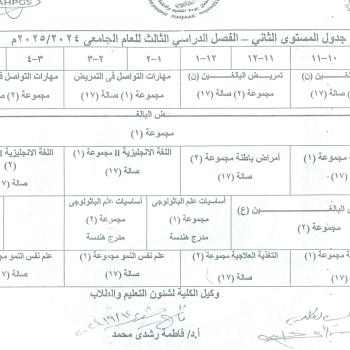 AHPGS
NAQAAE
جدول المستوى الثاني – الفصل الدراسي الثالث للعام الجامعي ٢٠٢٥/٢٠٢٤م
١٠–١١ ١١–١٢ ١٢–١ ١–٢ ٢–٣ ٣–٤
ين (ن) تمريض البالغين (ن) مهارات التواصل فى التمريض مهارات التواصل ف
(١) مجموعة (٢) مجموعة (١) صالة (١٧) مجموعة (٢) صالة (١٧)
ض البالغ
مجموعة (١)
مجموعة (١) أمراض باطنة مجموعة (٢) اللغة الانجليزية II مجموعة (١) اللغة الانجليزية II
(٢)
(١٧) صالة (١٧) صالة (١٧) صالة (١٧)
البالغين (ع) أساسيات علم الباثولوجى أساسيات علم الباثولوجى
مجموعة (٢) مجموعة (١) مجموعة (٢)
مدرج هندسة مدرج هندسة
(١) التغذية العلاجية مجموعة (٢) علم نفس النمو مجموعة (١) علم نفس النمو مج
صالة (١٧) صالة (١٧) صالة (١٧)
وكيل الكلية لشئون التعليم والطلاب
أ.د/ فاطمة رشدى محمد